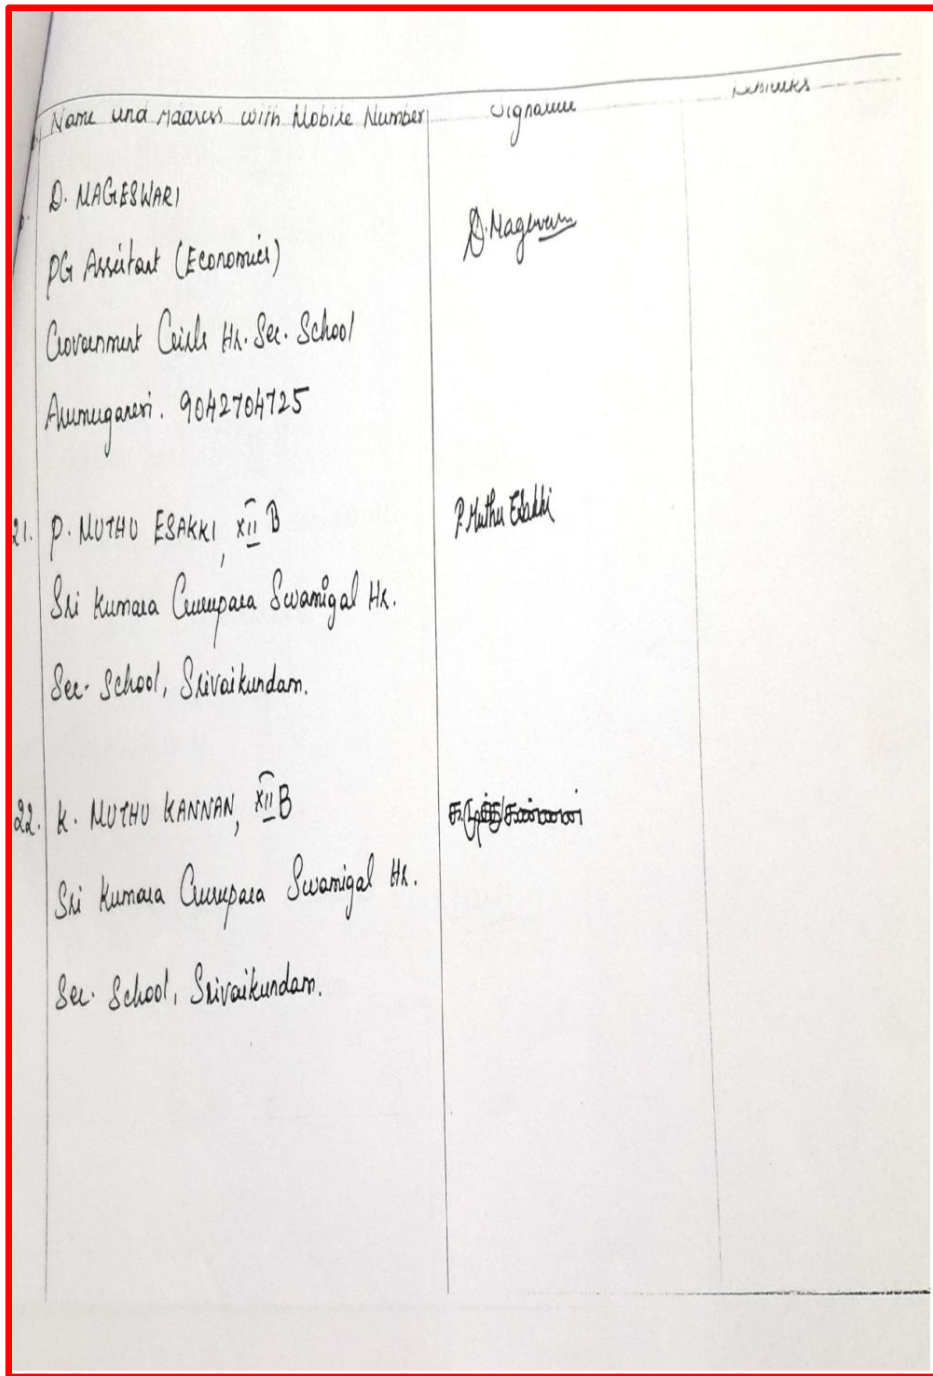 Name and Address with Mobile Number Signature Remarks
D. MAGESWARI
D. Mageswari
PG Assistant (Economics)
Government Girls Hr. Sec. School
Arumuganeri. 9042704725
21. P. MUTHU ESAKKI, XII B P. Muthu Esakki
Sri Kumara Gurupara Swamigal Hr.
Sec. School, Srivaikundam.
22. K. MUTHU KANNAN, XII B
Sri Kumara Gurupara Swamigal Hr.
Sec. School, Srivaikundam.